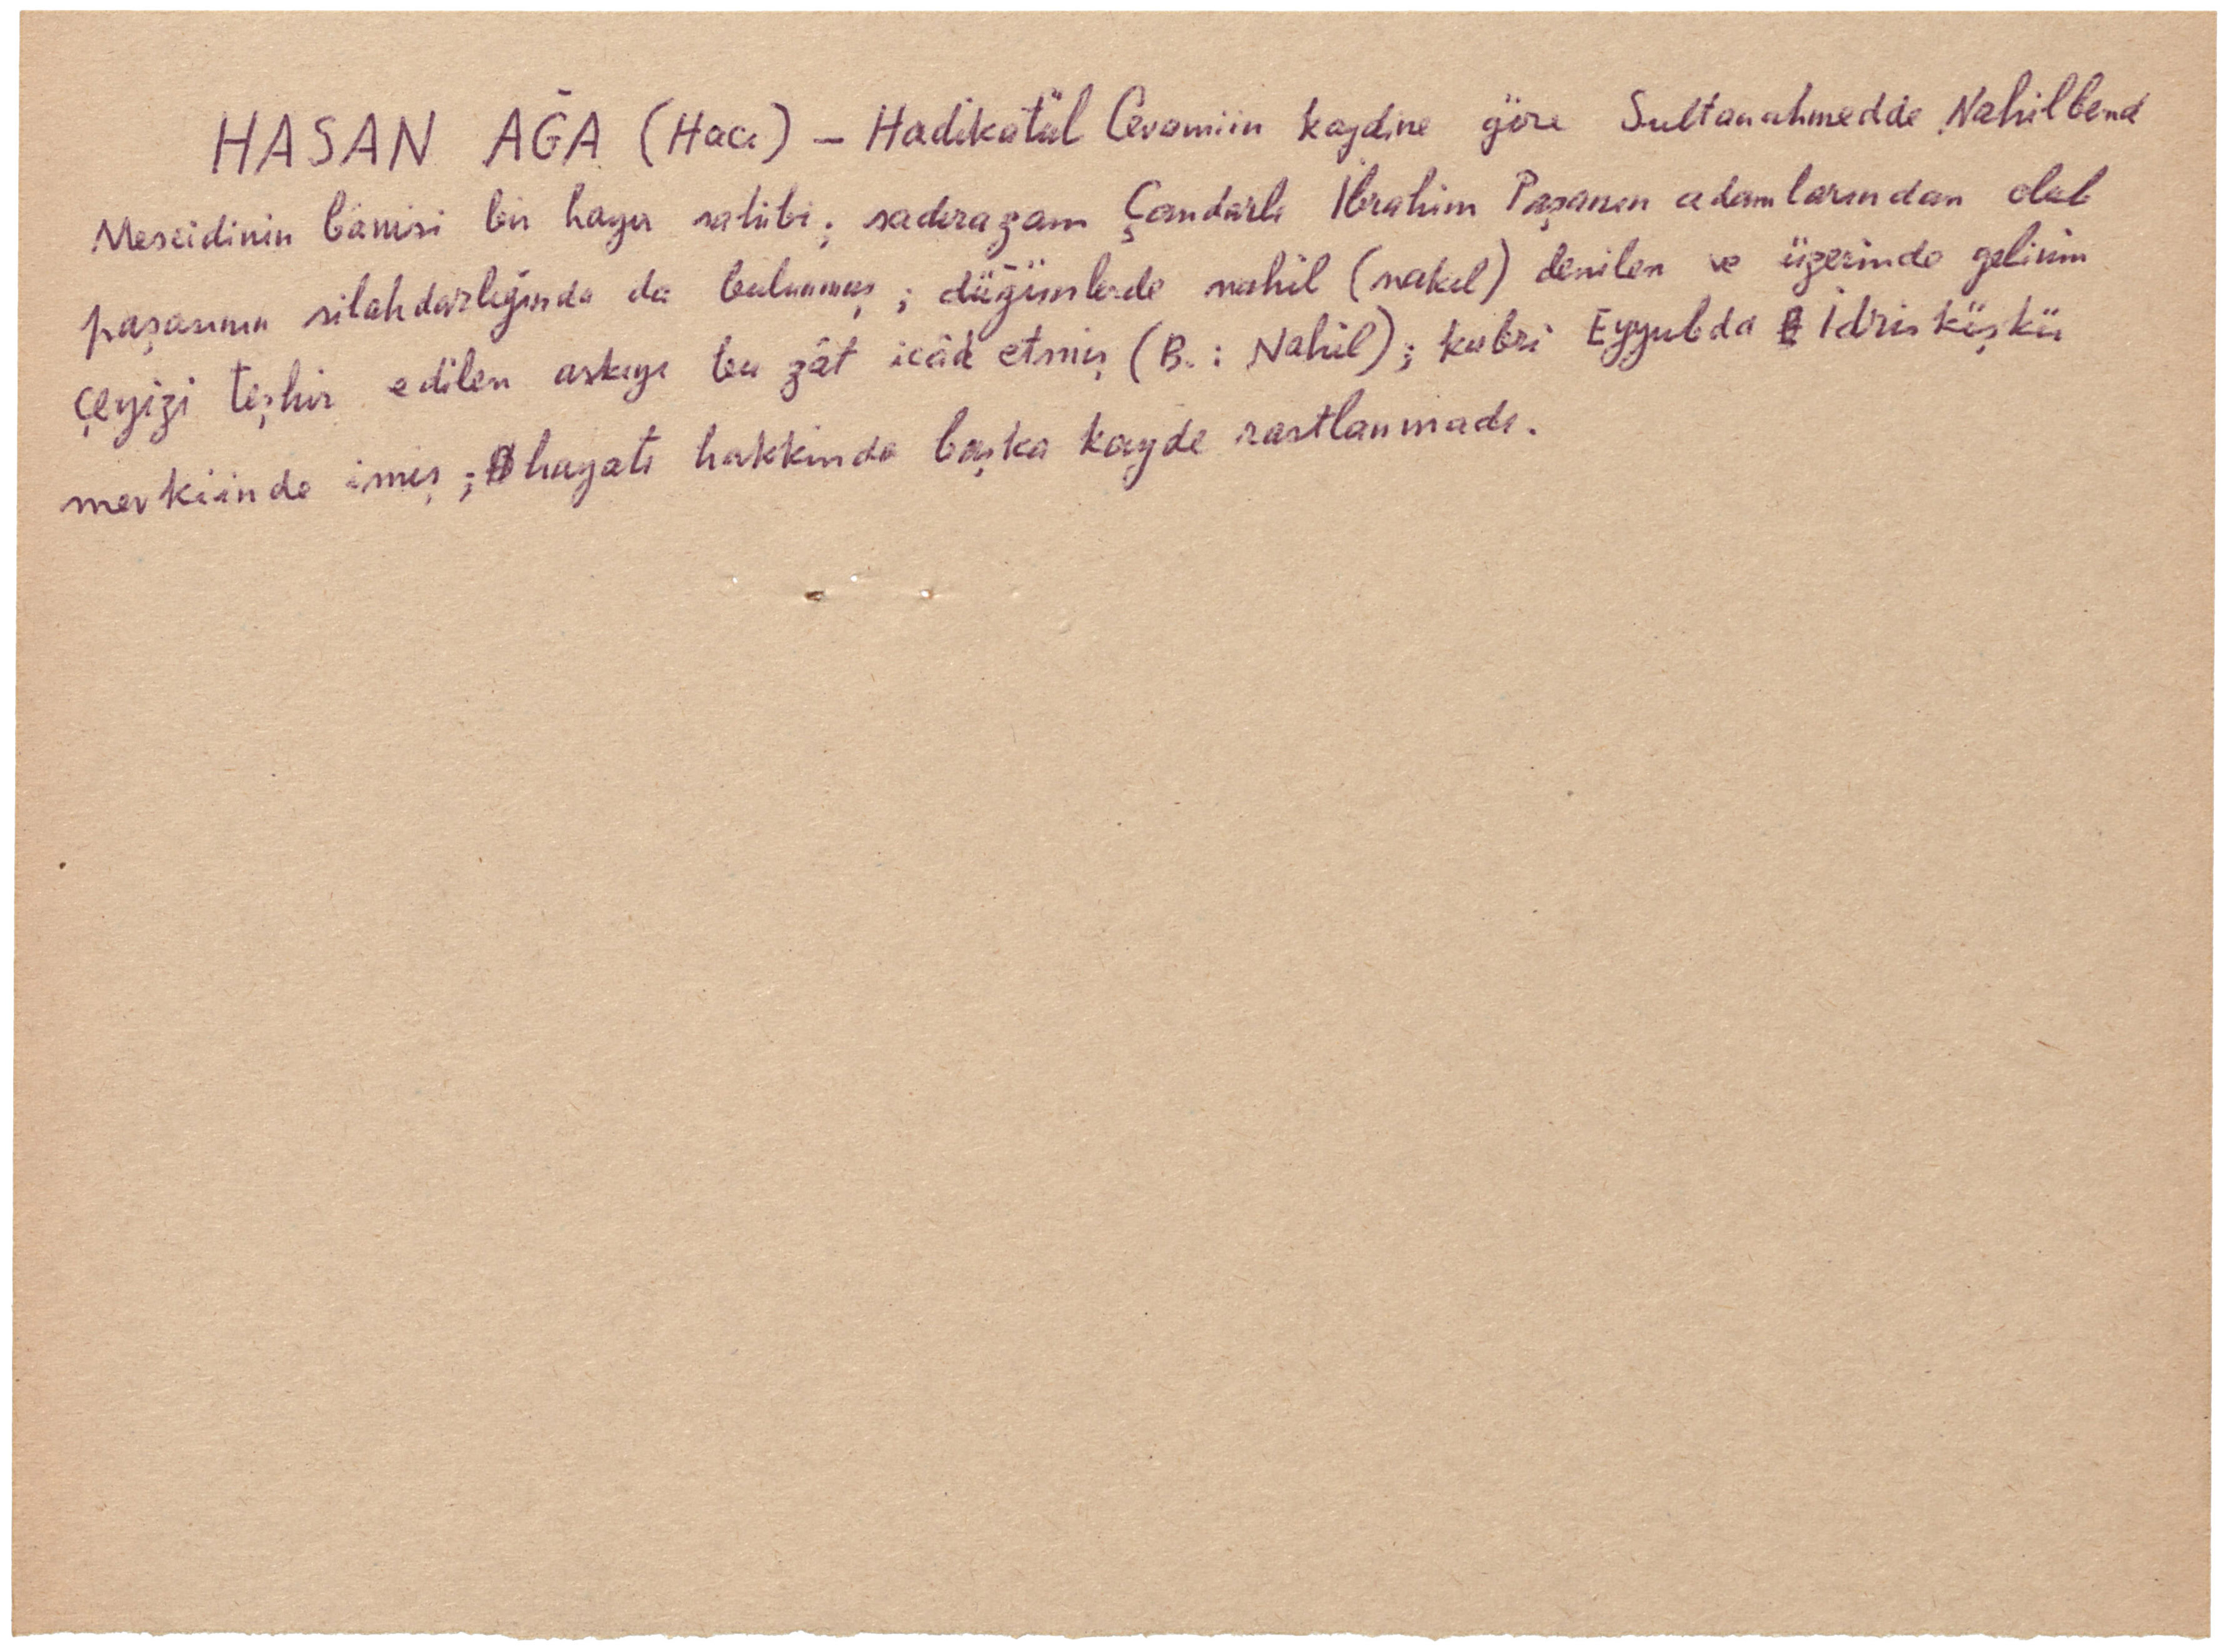 HASAN AĞA (Hacı) — Hadikatül Cevamiin kaydine göre Sultanahmedde Nahilbend
Mescidinin bânisi bir hayır sahibi; sadırazam Çandarlı İbrahim Paşanın adamlarından olub
paşasının silahdarlığında da bulunmuş; düğünlerde nahil (nakıl) denilen ve üzerinde gelinin
çeyizi teşhir edilen askıyı bu zât icâd etmiş (B. : Nahil); kabri Eyyubda İdrisköşkü
mevkiinde imiş; hayatı hakkında başka kayde rastlanmadı.